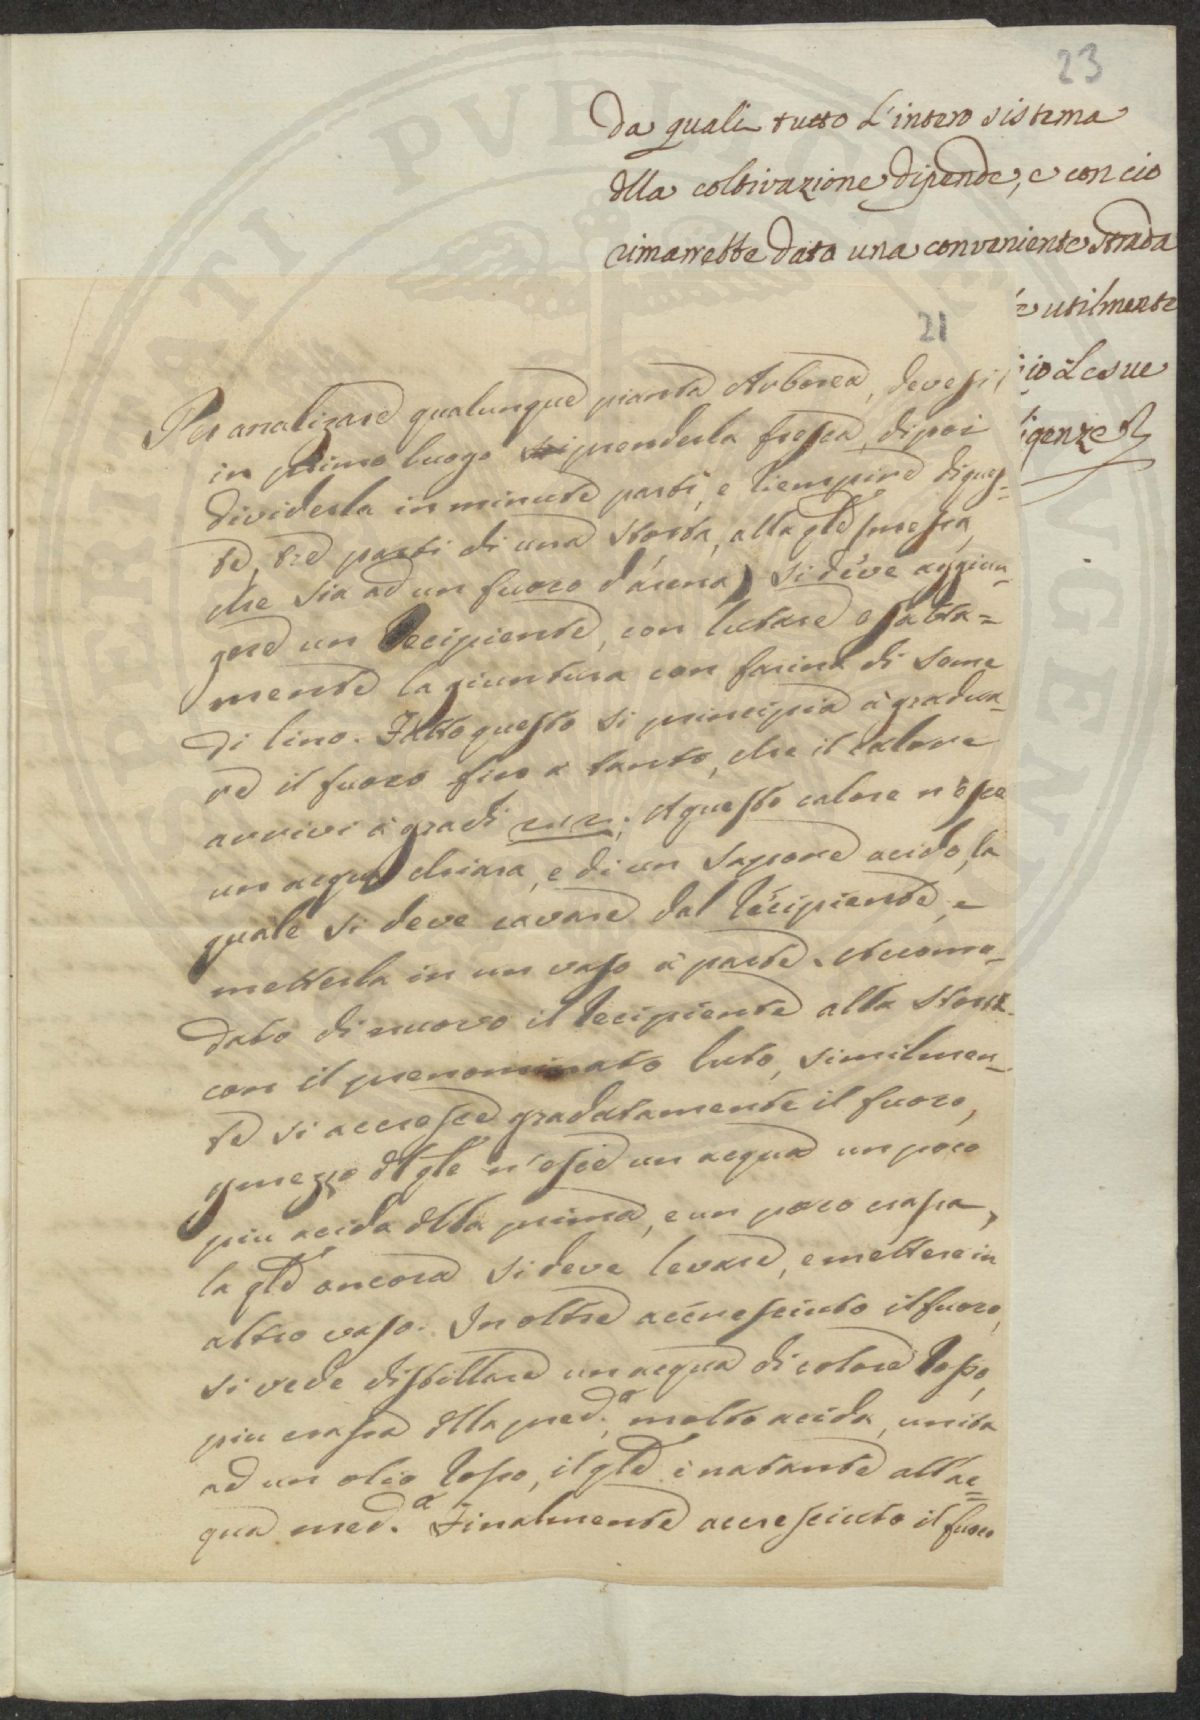 23
da quali tutto l'intero sistema
dlla coltivazione dipende, e con cio
rimarrebbe dato una conveniente strada
è utilmente
io Le sue
igenze
21
Per analizare qualunque pianta Arborea, devesi
in primo luogo prenderla fresca, dipoi
dividerla in minute parti, e riempire di ques=
te, tre parti di una storta, alla qle smessa,
che sia ad un fuoco d'arena, si deve aggiun=
gere un Recipiente, con lutare esatta=
mente la giuntura con farina di seme
di lino. Fatto questo si principia à gradua=
re il fuoco fino a tanto, che il calore
arrivi à gradi 212; A questo calore n'esce
un acqua chiara, e di un sapore acido, la
quale si deve cavare dal Recipiente, e
metterla in un vaso à parte. Accomo=
dato di nuovo il Recipiente alla storta
con il prenominato luto, similmen=
te si accresce gradatamente il fuoco,
p mezzo dl qle n'esce un acqua un poco
piu acida dlla prima, e un poco crassa,
la qle ancora si deve levare, e mettere in
altro vaso. Inoltre accresciuto il fuoco,
si vede distillare un acqua di colore Rosso,
piu crassa dlla pred.a, molto acida, unita
ad un olio Rosso, il qle è natante all'ac=
qua med.a Finalmente accresciuto il fuoco